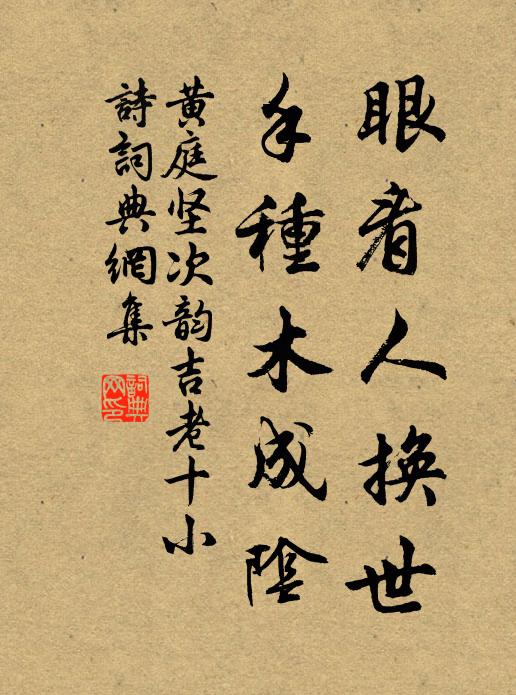 眼看人換世
手種木成陰
黄庭坚次韵吉老十小
詩詞典網集
詞典網印